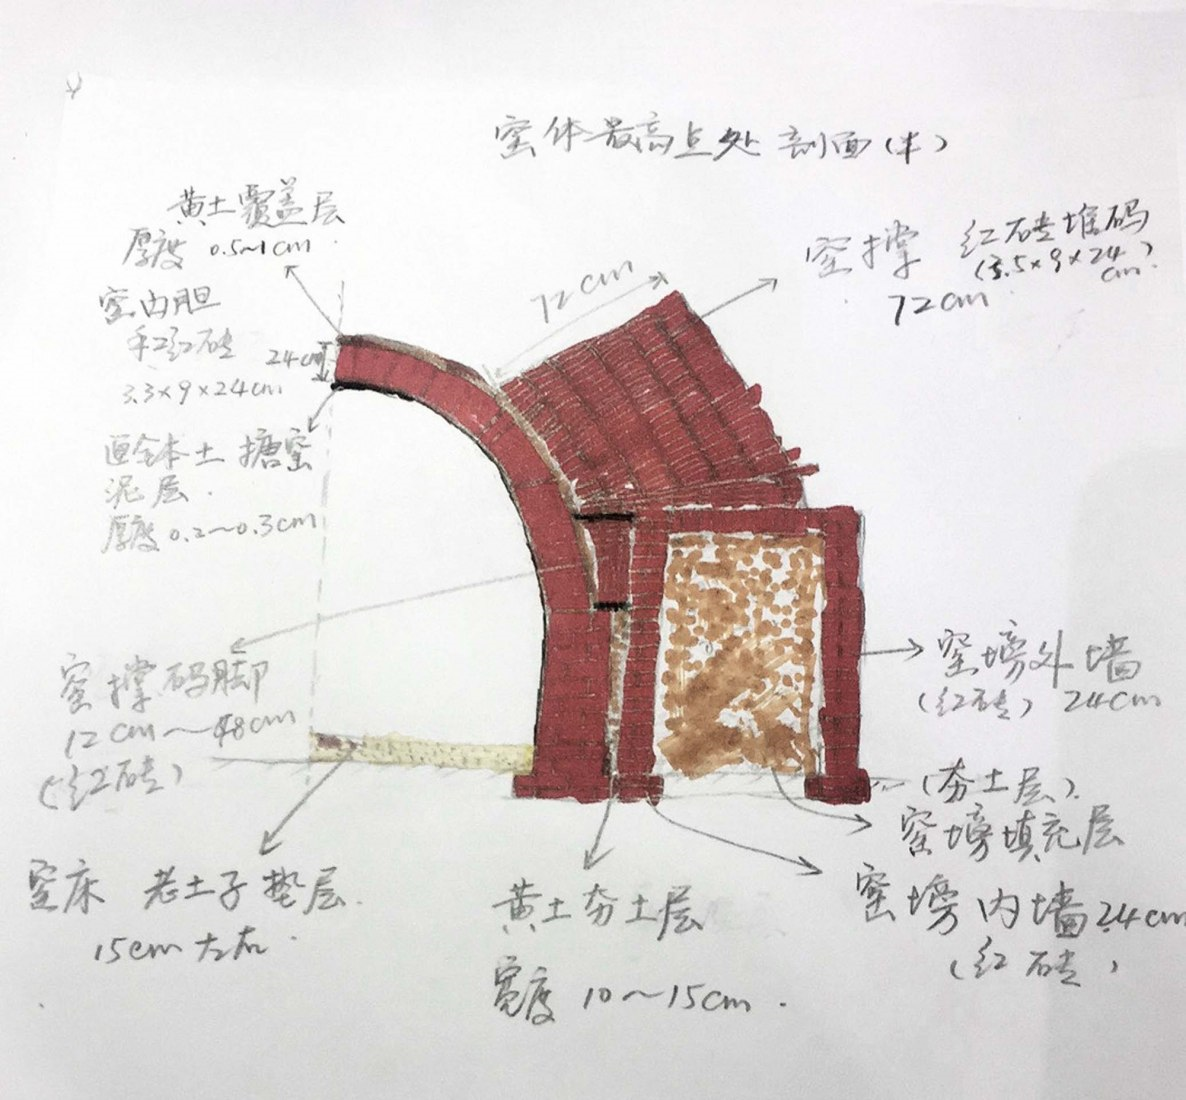 窑体最高点处剖面(半)
黄土覆盖层
厚度 0.5~1cm
窑内胆
手工红砖
3.3×9×24cm
24cm
72cm
窑撑 红砖堆码
(3.5×9×24
cm)
72cm
本土 搪窑
泥层.
厚度0.2~0.3cm
窑撑码脚
12cm~48cm
(红砖)
窑床 老土子垫层.
15cm左右.
黄土夯土层
宽度 10~15cm.
窑塝外墙
(红砖) 24cm
(夯土层)
窑塝填充层
窑塝内墙24cm
(红砖)